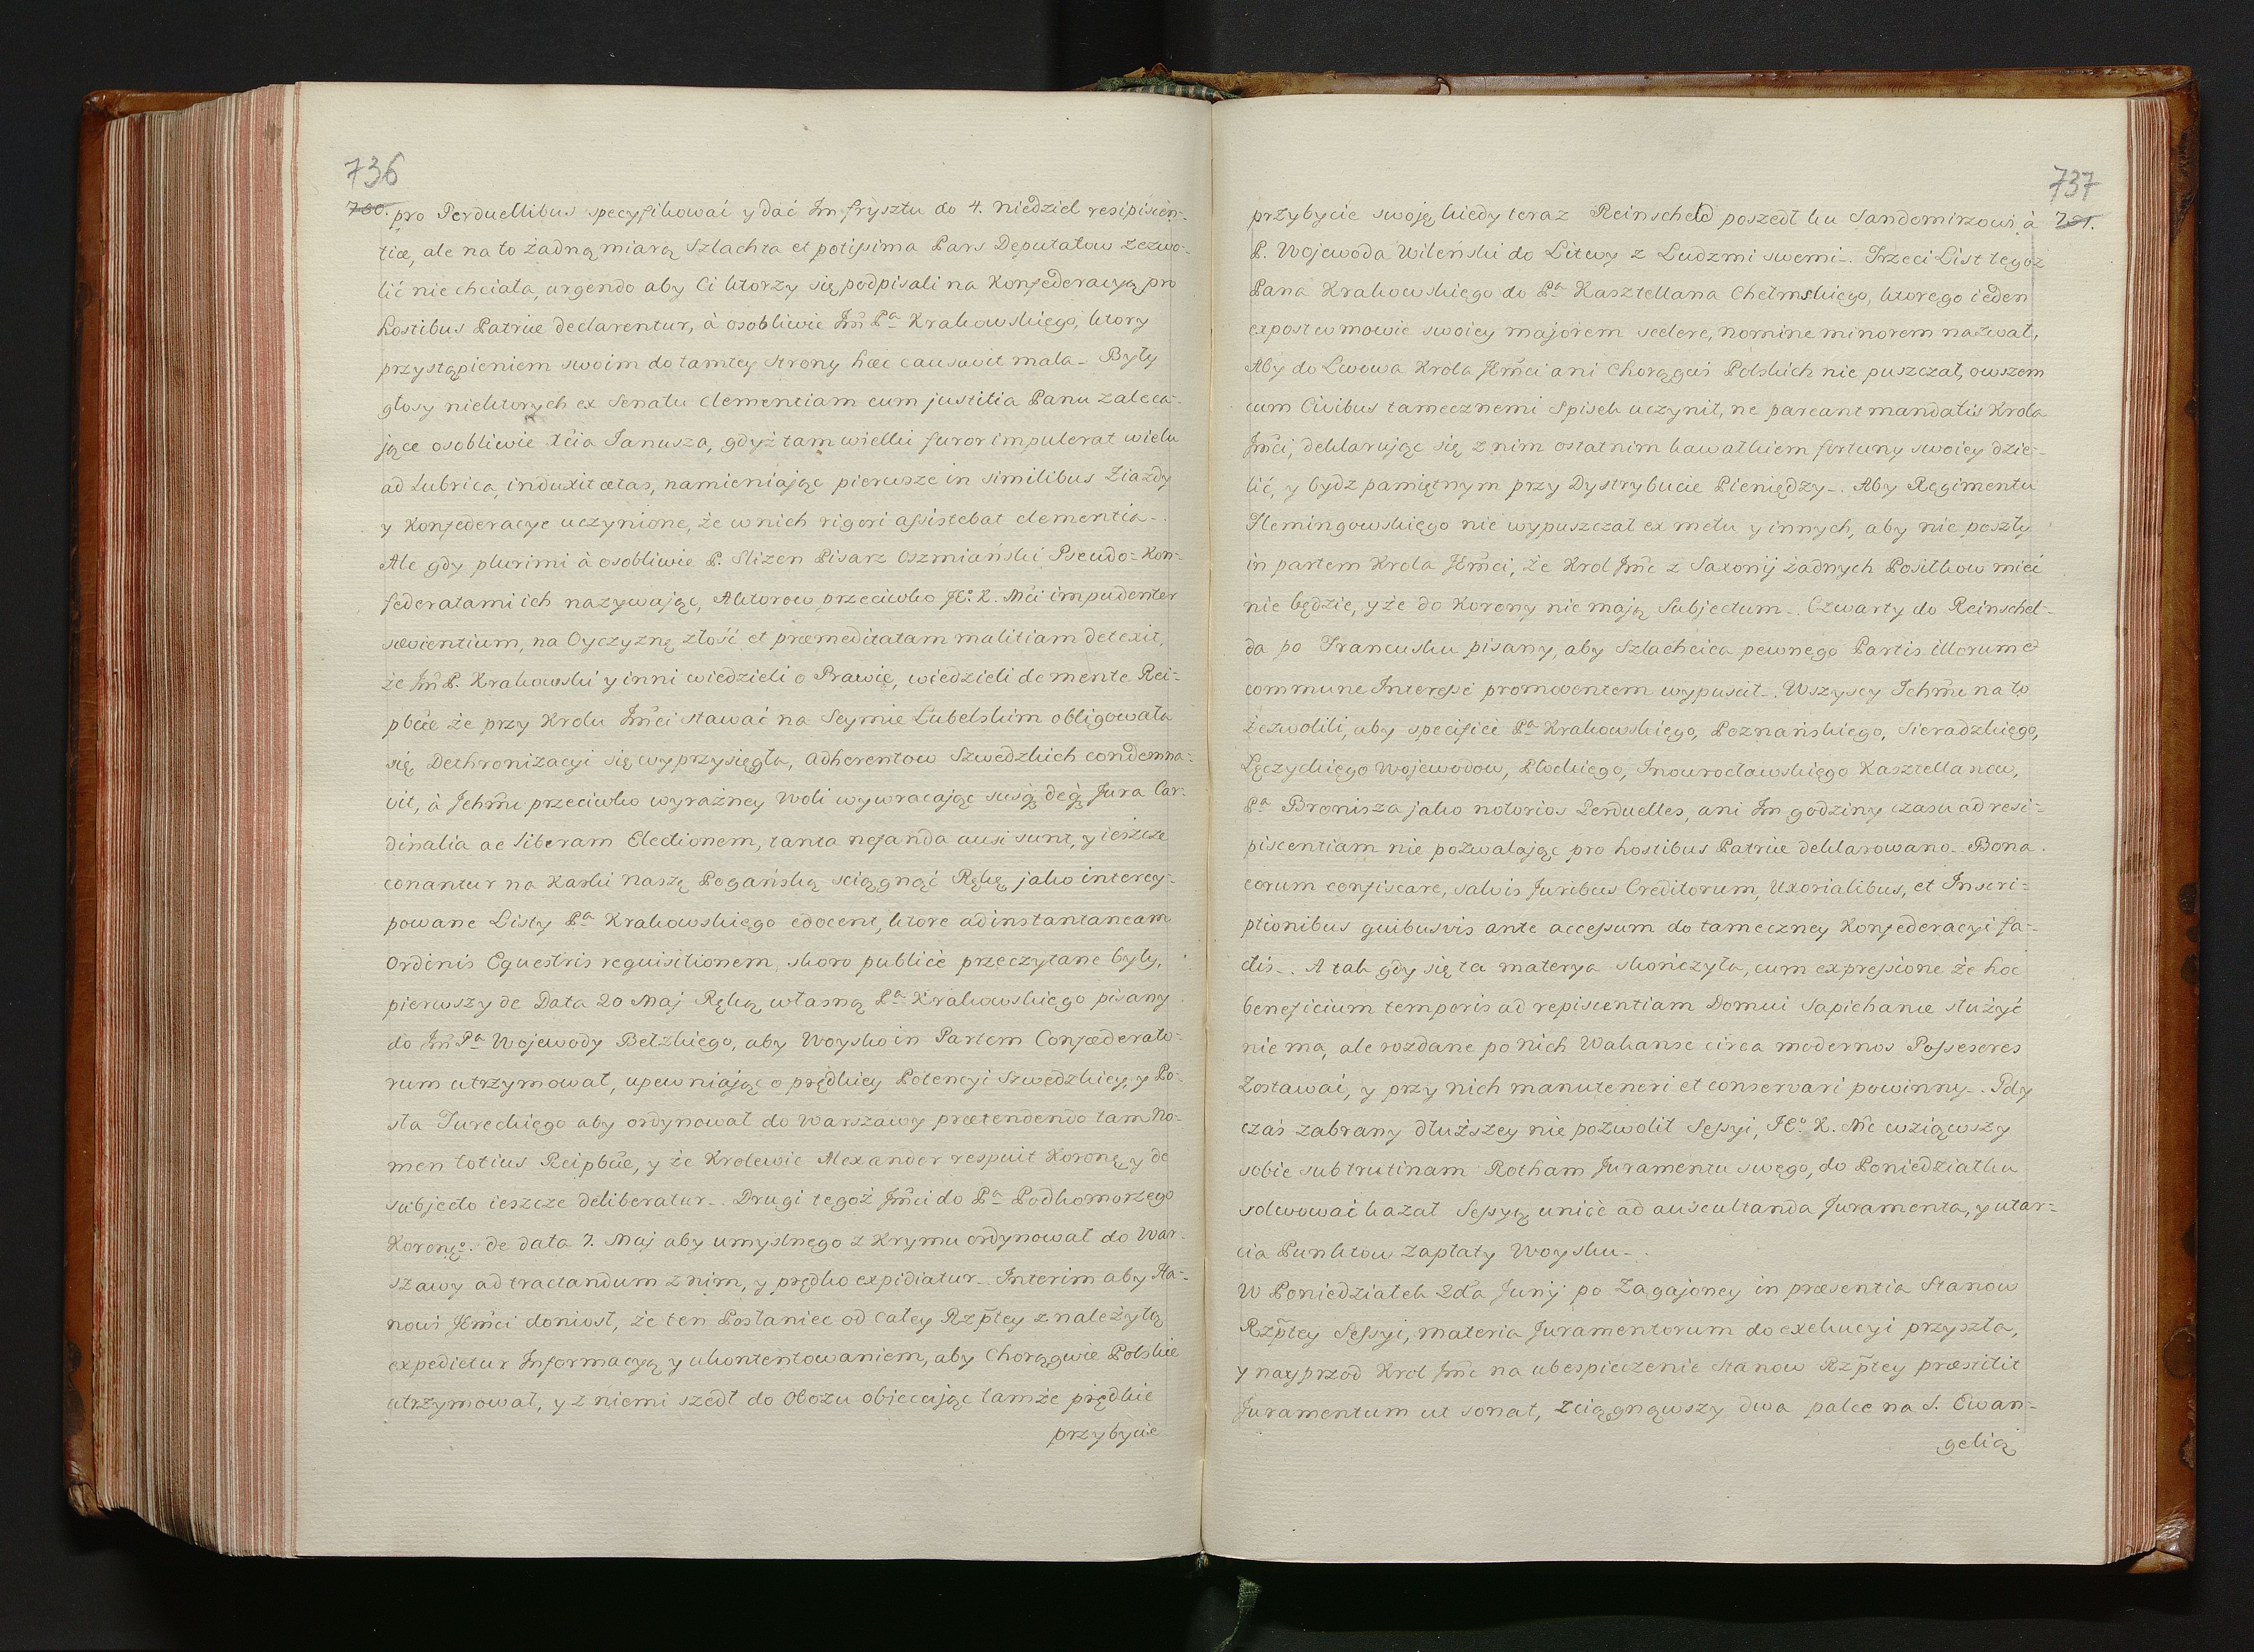 736
780. pro Perduellibus specyfikować y dać Im frysztu do 4. niedziel resipiscen-
tiæ, ale na to żadną miarą Szlachta et potissima Pars Deputatow zezwo-
lić nie chciała, urgendo aby Ci ktorzy się podpisali na Konfederacyą pro
hostibus Patriæ declarentur, à osobliwie Jm̃ Pa Krakowskięgo, ktory
przystąpieniem swoim do tamtey strony hæc causavit mala_ Były
głosy niektorych ex Senatu clementiam cum justitia Panu zaleca-
jące osobliwie Xcia Janusza, gdyż tam wielki furor impulerat wielu
ad Lubrica, induxit ætas, namieniając pierwsze in similibus Ziazdy
y Konfederacye uczynione, że w nich rigori assistebat clementia_.
Ale gdy plurimi à osobliwie P. Slizen Pisarz Oszmiański Pseudo=Kon-
federatami ich nazywając, Aktorow przeciwko JKo. K. Mci impudenter
sævientium, na Oyczyznę złość et præmeditatam malitiam detexit,
że Jm̃ P. Krakowski y inni wiedzieli o Prawie, wiedzieli de mente Rei-
pbcæ że przy Krolu Jm̃ci stawać na Seymie Lubelskim obligowała
się, Dethronizacyi się wyprzysięgła, adherentow Szwedzkich condemna-
vit, à Ichm̃ przeciwko wyraźney woli wywracając Jura Car-
dinalia ac liberam Electionem, tanta nefanda ausi sunt, y ieszcze
conantur na Karki naszę Pogańską sciągnąć Rękę, jako intercy-
powane Listy Pa Krakowskięgo edocent, ktore ad instantaneam
Ordinis Equestris requisitionem, skoro publicè przeczytane były,
pierwszy de Data 20 Maj Ręką własną Pa Krakowskięgo pisany
do Jm̃ Pa Wojewody Bełzkięgo, aby Woysko in Partem Confœderato-
rum utrzymował, upewniając o prędkiey Potencyi Szwedzkiey, y Po-
sła Tureckięgo aby ordynował do Warszawy prætendendo tam No-
men totius Reipbcæ, y że Krolewic Alexander respuit Koronę, y de
subjecto ieszcze deliberatur_. Drugi tegoż Jm̃ci do Pa Podkomorzego
Koronęo. de data 7. Maj aby umyslnęgo z Krymu ordynował do War-
szawy ad tractandum z nim, y prędko expidiatur_. Interim aby Ha-
nowi Jm̃ci doniosł, że ten Posłaniec od całey Rzp̃tey z należytą
expedietur Informacyą y ukontentowaniem, aby Chorągwie Polskie
utrzymował, y z niemi szedł do Obozu obiecając tamże prędkie
przybycie
737
781.
przybycie swoję kiedy teraz Reinscheld poszedł ku Sandomirzowi, à
P. Wojewoda Wileński do Litwy z Ludzmi swemi_. Trzeci List tegoż
Pana Krakowskięgo do Pa Kasztellana Chełmskięgo, ktorego ieden
ex post w mowie swoiey majorem scelere, nomine minorem nazwał,
Aby do Lwowa Krola Jm̃ci ani Chorągwi Polskich nie puszczał, owszem
cum Civibus tamecznemi Spisek uczynił, ne pareant mandatis Krola
Jm̃ci, deklarując się z nim ostatnim kawałkiem fortuny swoiey dzie-
lić, y bydz pamiętnym przy Dystrybucie Pieniędzy_. Aby Regimentu
Flemingowskięgo nie wypuszczał ex metu y innych, aby nie poszły
in partem Krola Jm̃ci, że Krol Jm̃c z Saxonij żadnych Posiłkow mieć
nie będzie, y że do Korony nie mają Subjectum_. Czwarty do Reinschel-
da po Francusku pisany, aby Szlachcica pewnego Partis illorum et
commune Interesse promoventem wypuscił_. Wszyscy Ichm̃ na to
zezwolili, aby specificè Pa Krakowskięgo, Poznańskięgo, Sieradzkięgo,
Łęczyckięgo Wojewodow, Płockięgo, Inowrocławskięgo Kasztellanow,
Pa Bronisza jako notorios Perduelles, ani Im godziny czasu ad resi-
piscentiam nie pozwalając pro hostibus Patriæ deklarowano_. Bona
eorum confiscare, salvis Juribus Creditorum, Uxorialibus, et Inscri-
ptionibus quibusvis ante accessum do tameczney Konfederacyi fa-
ctis_. A tak gdy się ta materya skończyła, cum expressione że hoc
beneficium temporis ad repiscentiam Domui Sapiehanæ służyć
nie ma, ale rozdane po nich Wakanse circa modernos Possesores
Zostawać, y przy nich manuteneri et conservari powinny_. Gdy
czas zabrany dłuższey nie pozwolił Sessyi, JKo. K. Mc wziąwszy
sobie sub trutinam Rotham Juramentu swego, do Poniedziałku
solwować kazał Sessyą, unicè ad auscultanda Juramenta, y utar-
cia Punktow zapłaty Woysku_.
W Poniedziałek 2da Junij po Zagajoney in præsentia Stanow
Rzp̃tey Sessyi, materia Juramentorum do exekucyi przyszła,
y nayprzod Krol Jm̃c na ubespieczenie Stanow Rzp̃tey præstitit
Juramentum ut sonat, zciągnąwszy dwa palce na S. Ewan-
gelią